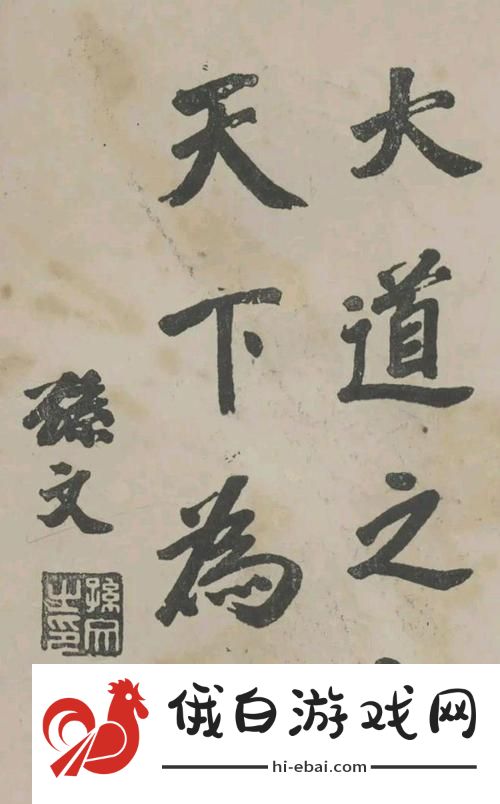 大道之
天下為
孫文
孫文之印
俄白游戏网
hi-ebai.com